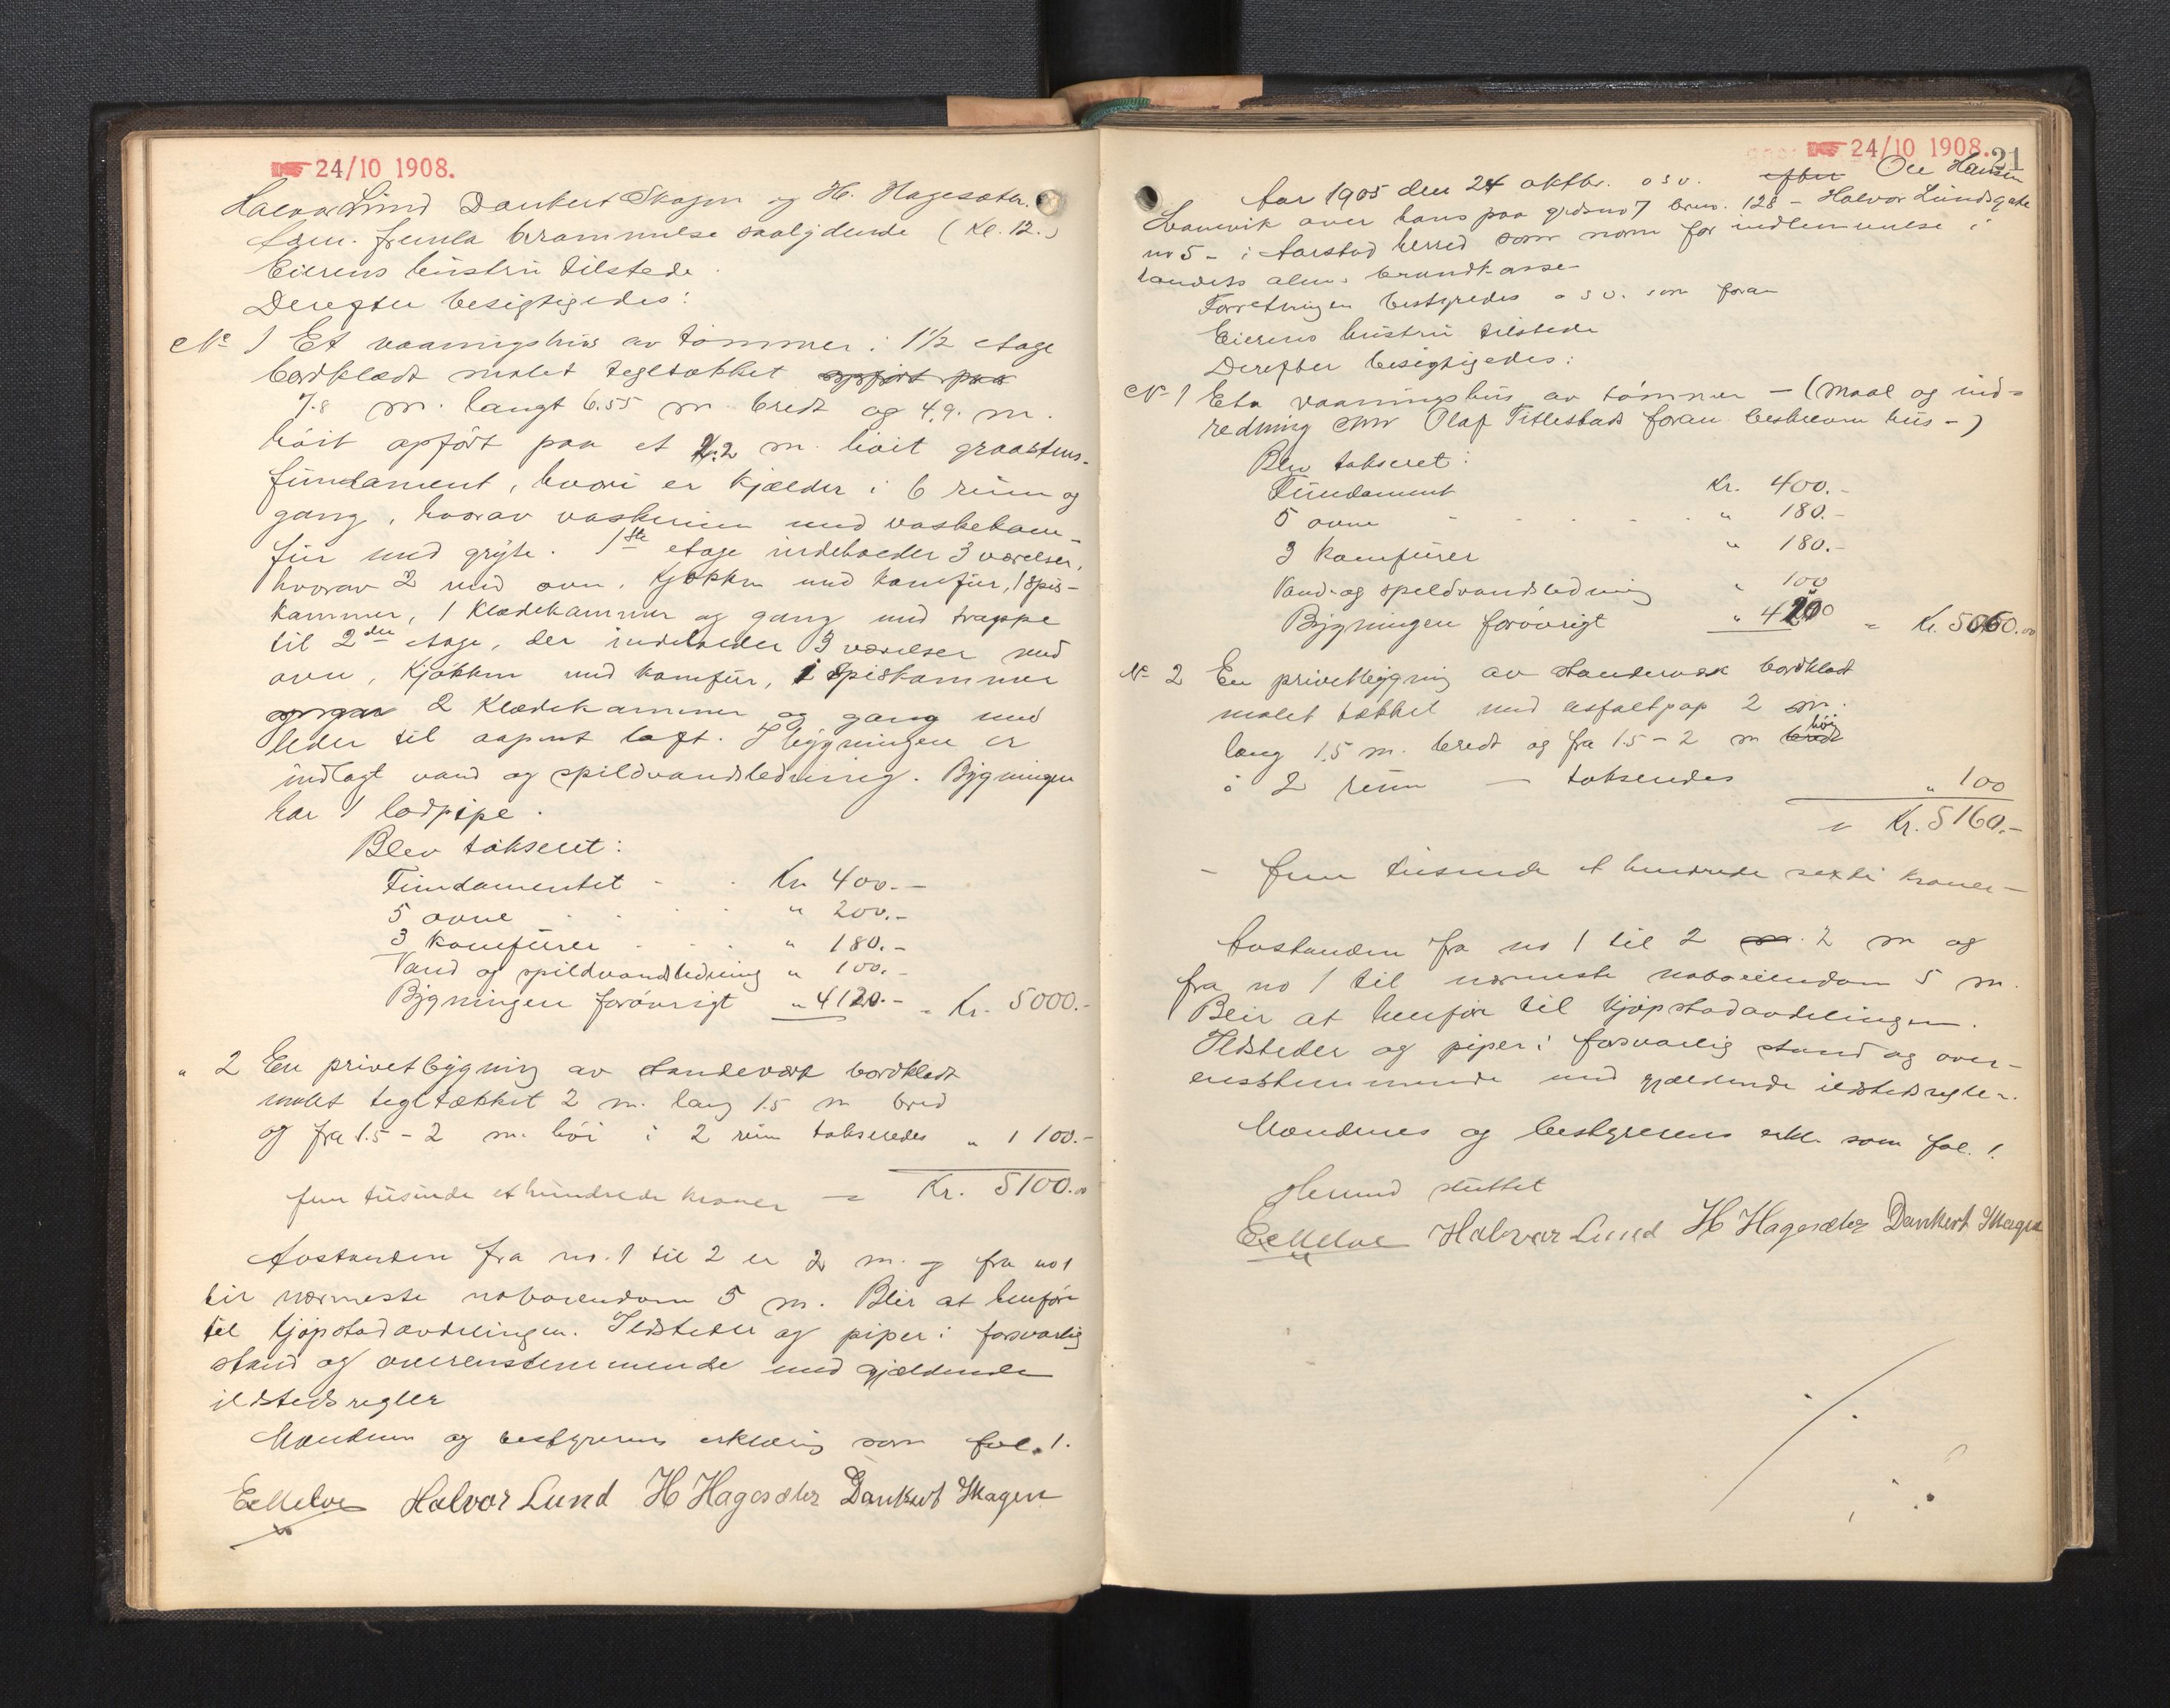 24/10 1908.
Halvor Lund Dankert Skagen og H. Hagesæter.
fremla berammelse saalydende (Kl. 12.)
Eierens hustru tilstede.
Derefter besigtigedes:
No 1 Et vaaningshus av tømmer i 1½ etage
bordklædt malet tegltækket opført paa
7.8 m. langt 6.55 m. bredt og 4.9. m.
høit opført paa et 2.2 m. høit graastens-
fundament, hvori er kjælder i 6 rum og
gang, hvorav vaskerum med vaskekom-
fur med gryte. 1ste etage indeholder 3 værelser,
hvorav 2 med ovn, kjøkken med komfur, 1 spis-
kammer, 1 klædekammer og gang med trappe
til 2den etage, der indeholder 3 værelser med
ovn, kjøkken med komfur, 1 spiskammer
2 klædekammer og gang med
leder til aapent loft. I bygningen er
indlagt vand og spildvandsledning. Bygningen
har 1 lodpipe.
Blev takseret:
Fundamentet - - Kr 400.-
5 ovne - - - " 200.-
3 komfurer - - - " 180.-
Vand og spildvandsledning " 100.-
Bygningen forøvrigt " 4120.- = Kr. 5000.-
" 2 En privetbygning av standerværk bordklædt
malet tegltækket 2 m. lang 1.5 m bred
og fra 1.5 - 2 m. høi i 2 rum takseredes " 100.-
fem tusinde et hundrede kroner = Kr. 5100.00
Avstanden fra no. 1 til 2 er 2 m. og fra no 1
til nærmeste naboeiendom 5 m. Blir at henføre
til kjøpstadavdelingen. Ildsteder og piper i forsvarlig
stand og overensstemmende med gjældende
ildstedsregler
Mændenes og bestyrerens erklæring som fol. 1.
E Melve Halvor Lund H Hagesæter Dankert Skagen
24/10 1908. 21
Aar 1905 den 24 oktbr. o s v. efter Ole Hansen
over hans paa grdsno 7 brno. 128 - Halvor Lundsgate
no 5 - i Aarstad herred som norm for indlemmelse i
landets alm. brandkasse
Forretningen bestyredes o s v. som foran
Eierens hustru tilstede
Derefter besigtigedes:
No 1 Eta vaaningshus av tømmer - (Maal og ind-
redning som Olaf Titlestads foran beskrevne hus -)
Blev takseret:
Fundament Kr. 400.-
5 ovne - - - - " 180.-
3 komfurer " 180.-
Vand- og spildvandsledning " 100
Bygningen forøvrigt " 4200 = Kr. 5060.00
No 2 En privetbygning av standerværk bordklædt
malet tækket med asfaltpap 2 m.
lang 1.5 m. bredt og fra 1.5 - 2 m bredt høi
i 2 rum - takseredes " 100
= Kr. 5160.-
- fem tusinde et hundrede sexti kroner -
Avstanden fra no 1 til 2 m. 2 m og
fra no 1 til nærmeste naboeiendom 5 m.
Blir at henføre til kjøpstadavdelingen.
Ildsteder og piper i forsvarlig stand og over-
ensstemmende med gjældende ildstedsregler.
Mændenes og bestyrerens erkl. som fol. 1.
Hermed sluttet
E Melve Halvor Lund H Hagesæter Dankert Skagen